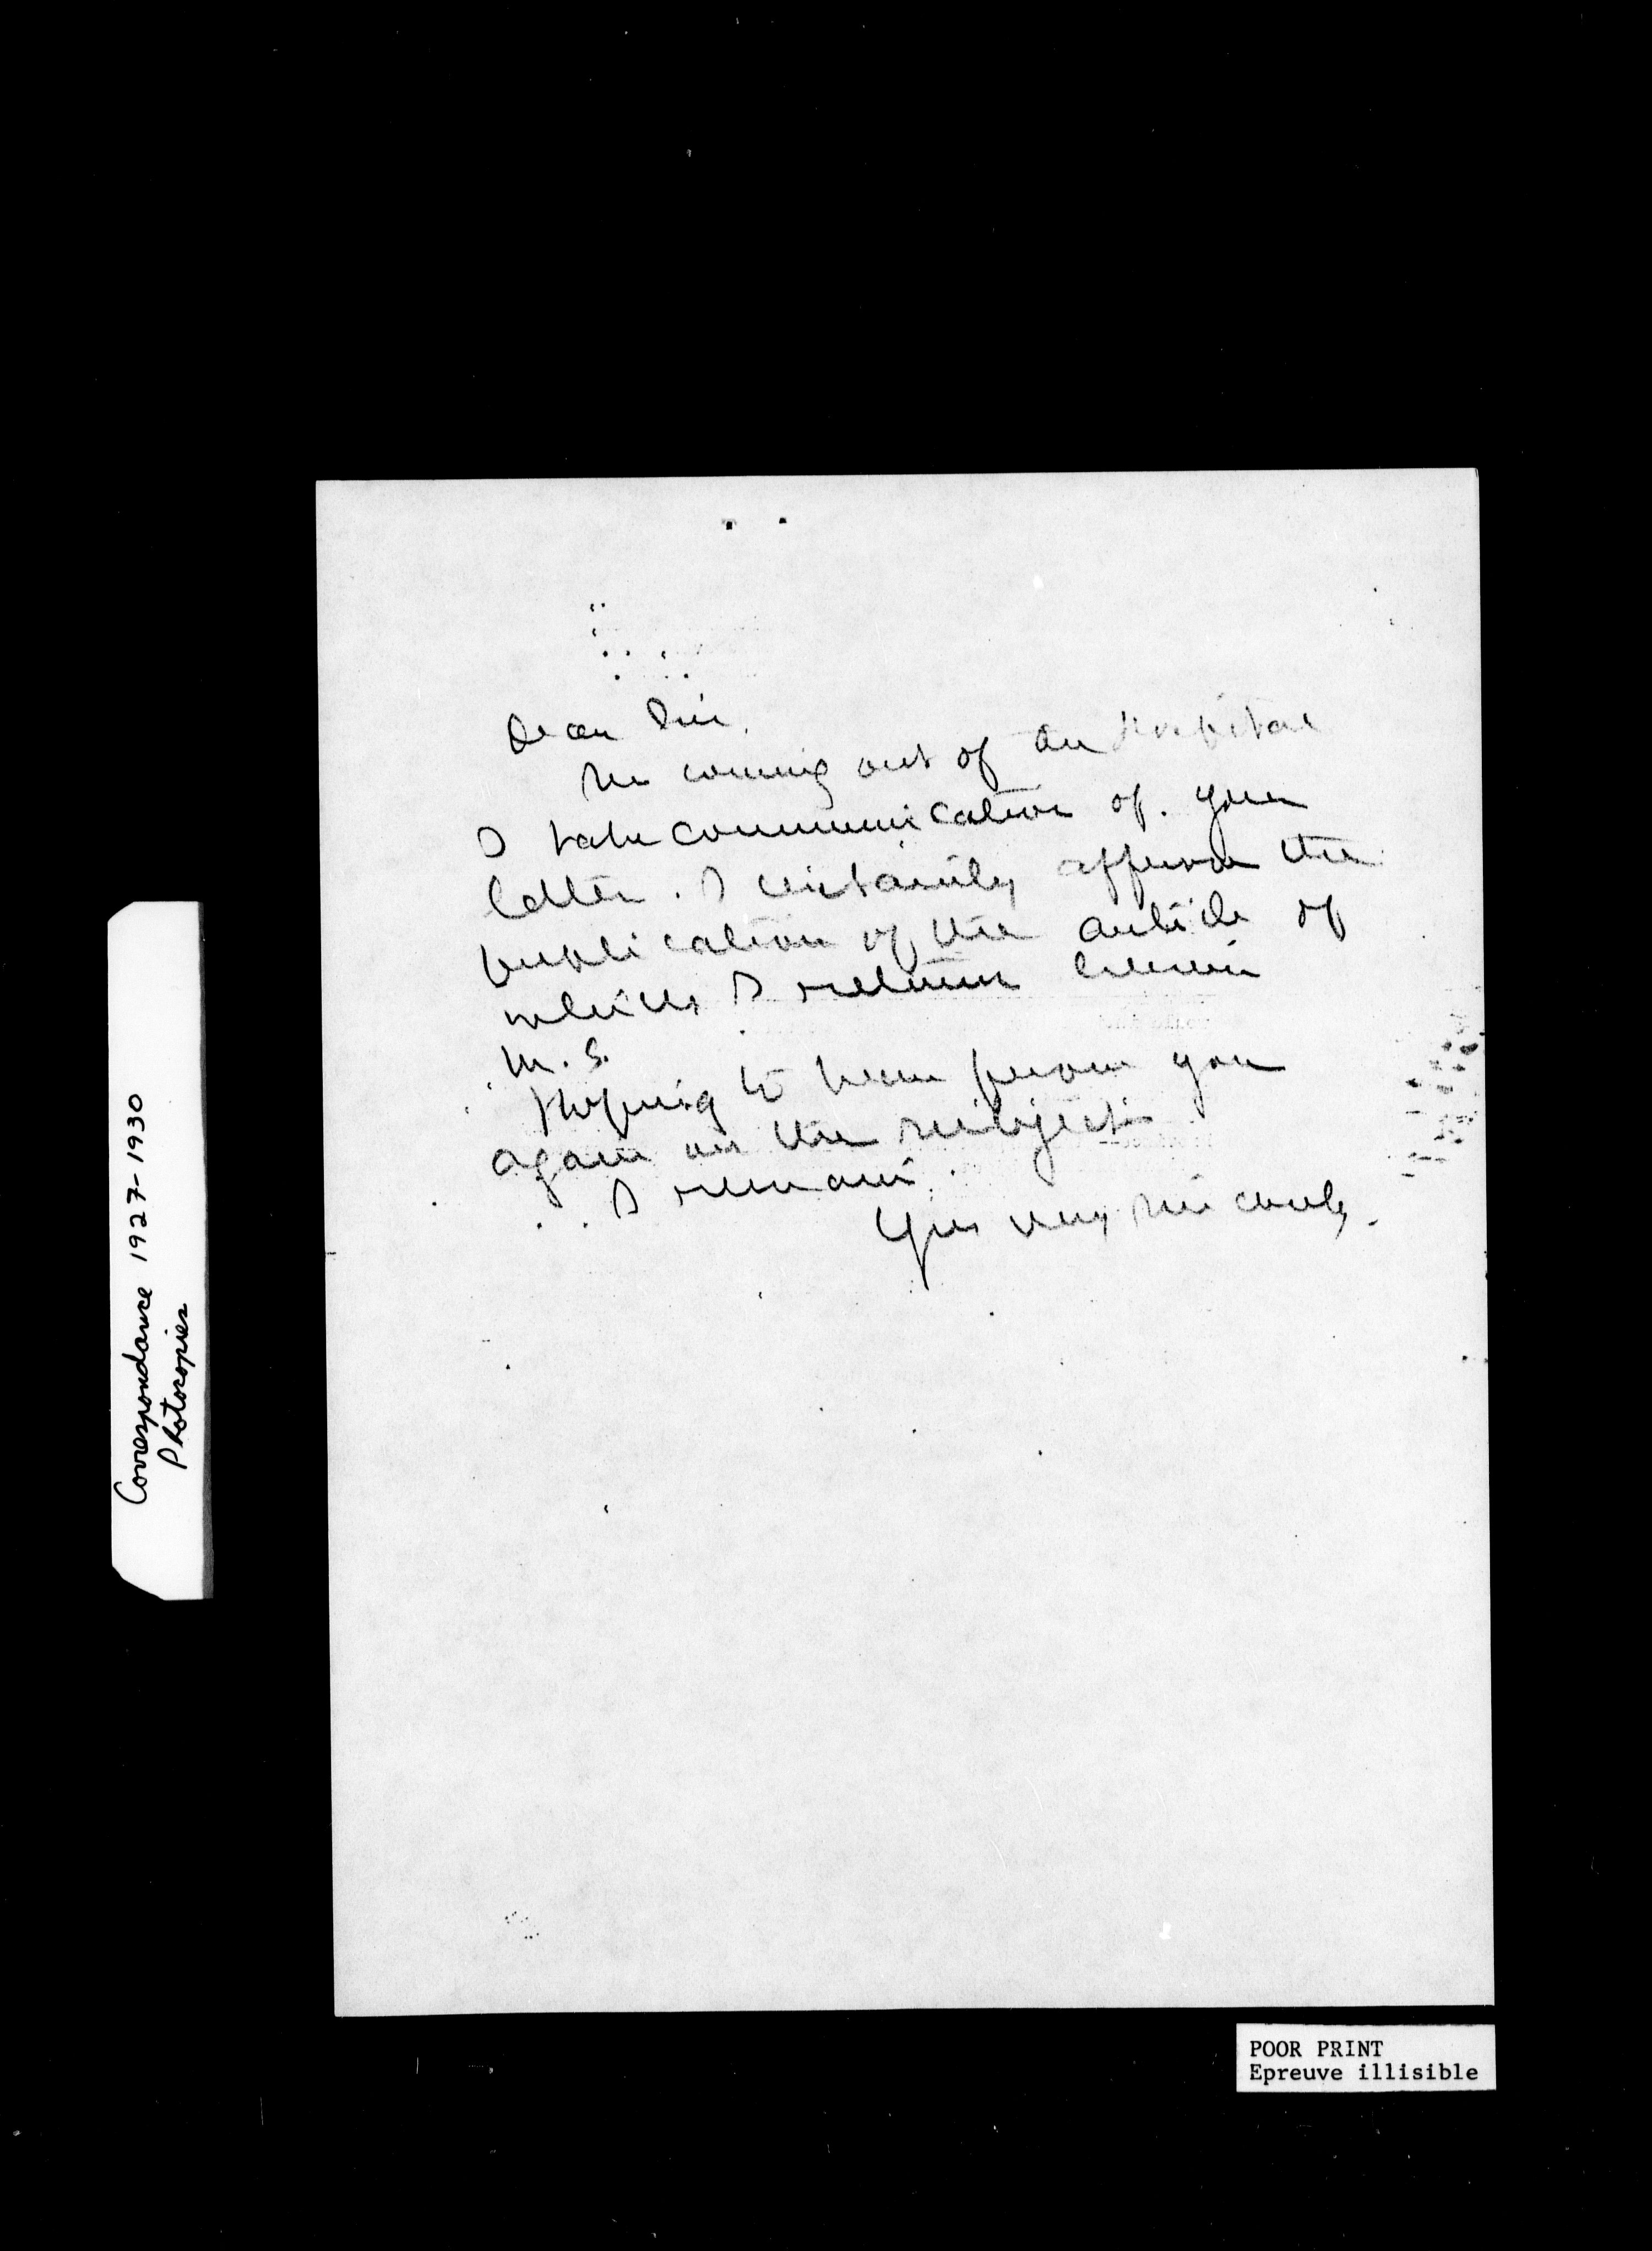 Correspondance 1927-1930
Photocopies
Dear Sir,
coming out of an Hospital
I take communication of your
letter. I certainly approve the
publication of the article of
which I return herein
M.S.
Hoping to hear from you
again on the subject
I remain
Yours very sincerely.
POOR PRINT
Epreuve illisible